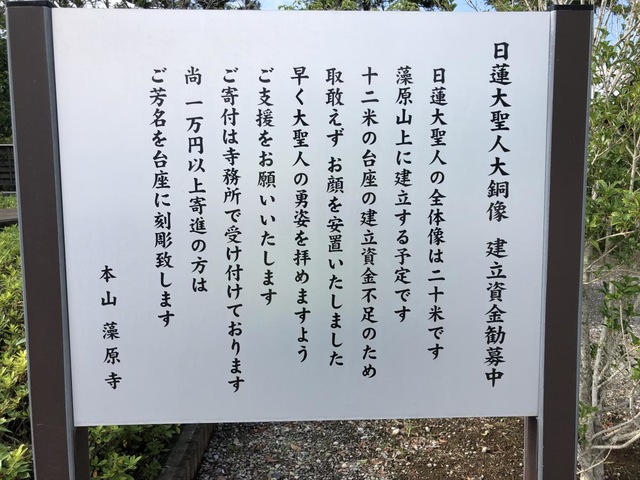 日蓮大聖人大銅像 建立資金勧募中
日蓮大聖人の全体像は二十米です
藻原山上に建立する予定です
十二米の台座の建立資金不足のため
取敢えず お顔を安置いたしました
早く大聖人の勇姿を拝めますよう
ご支援をお願いいたします
ご寄付は寺務所で受け付けております
尚 一万円以上寄進の方は
ご芳名を台座に刻彫致します
本山 藻原寺